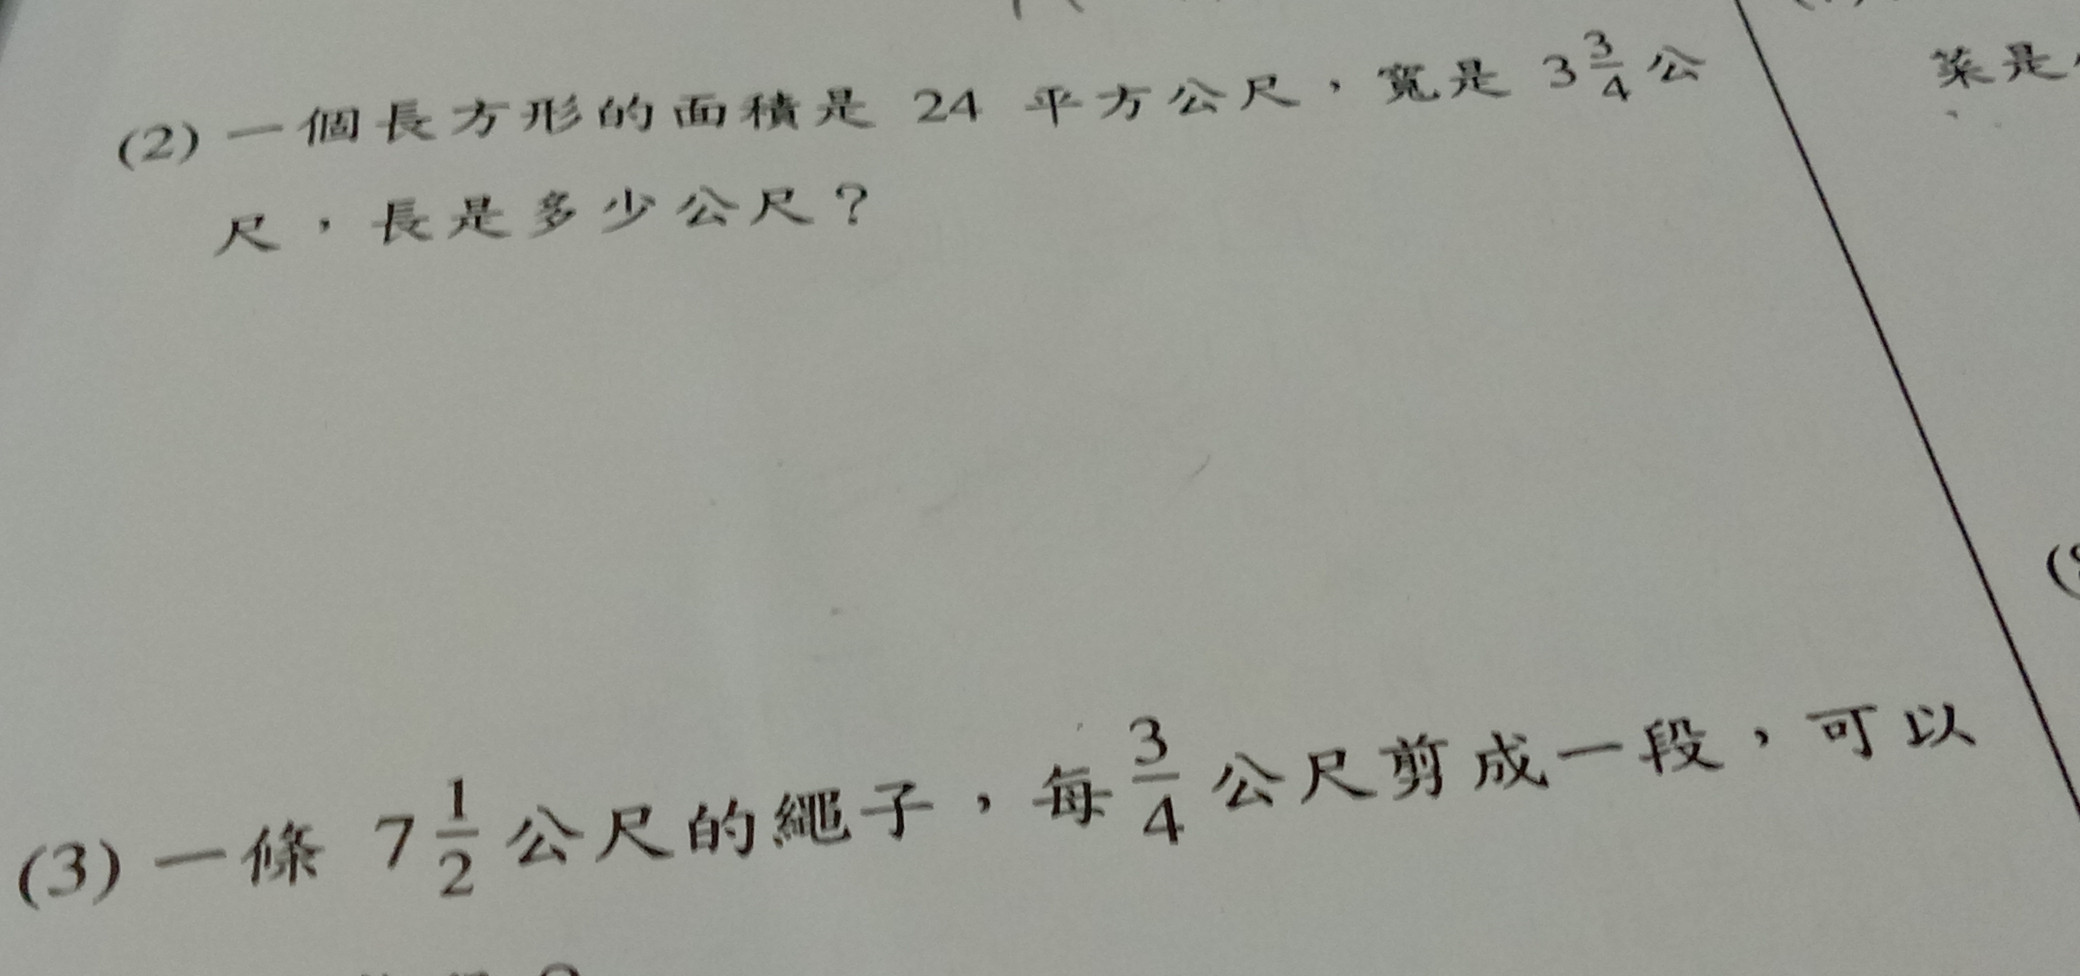 (2) 一個長方形的面積是 24 平方公尺，寬是 3 3/4 公
尺，長是多少公尺？
(3) 一條 7 1/2 公尺的繩子，每 3/4 公尺剪成一段，可以
菜是